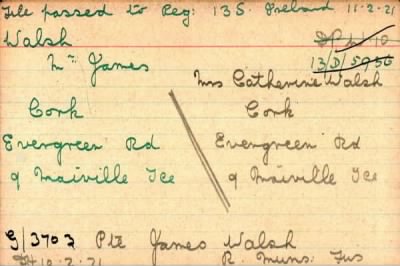 File passed to Reg: 13S. Ireland 11.2.21
Walsh
Mr James
13/D/5956
Mrs Catherine Walsh
Cork
Cork
Evergreen Rd
Evergreen Rd
9 Maiville Tce
9 Maiville Tce
G/3703 Pte James Walsh
10.2.21 R. Muns: Fus